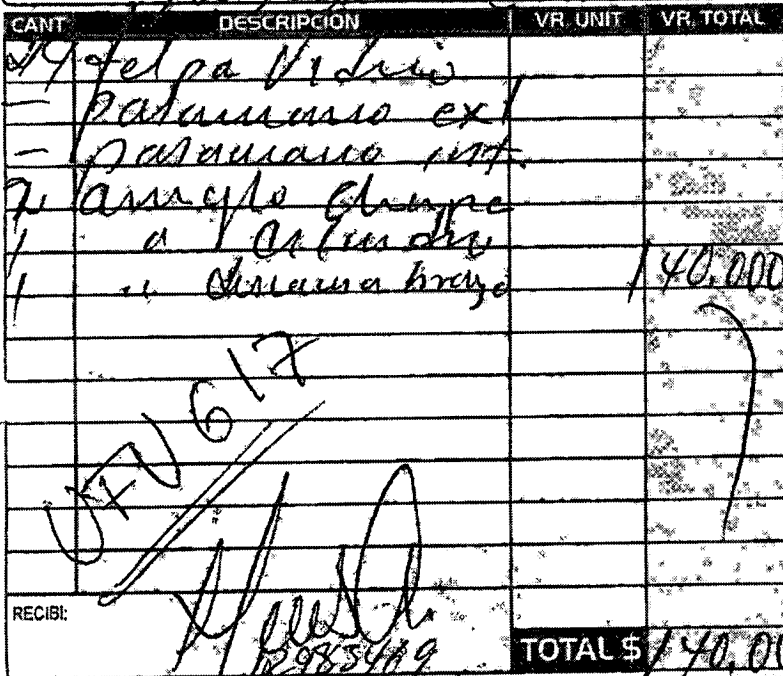 CANT DESCRIPCION VR. UNIT VR. TOTAL
felpa Vidrio
— pasamano ext
— pasamano int.
2 arreglo chapa
1 "
1 " brazo 140.000
UFV 617
RECIBI:
TOTAL $ 140,00